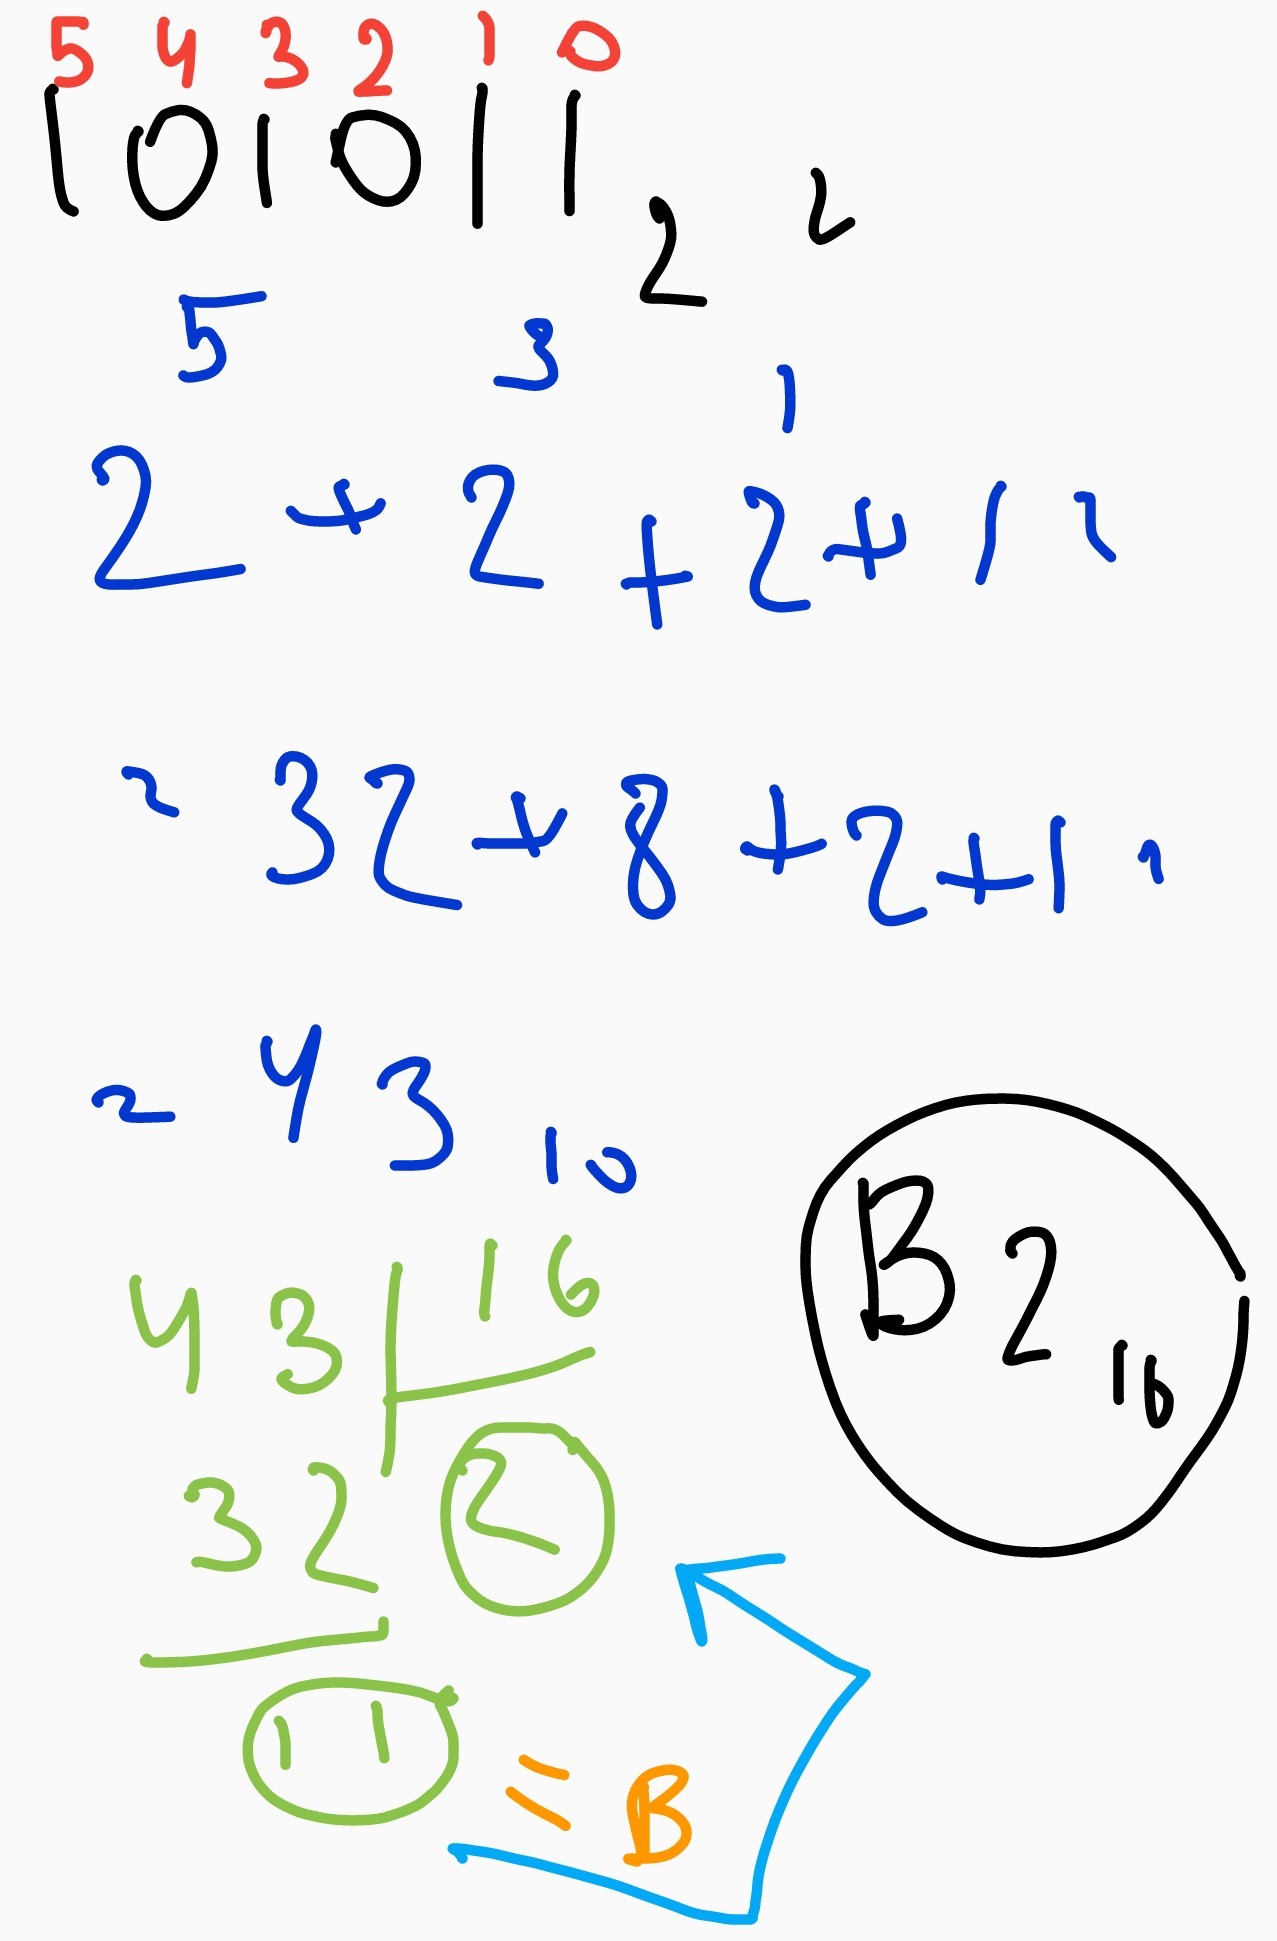 5 4 3 2 1 0
101011₂ =
2⁵ + 2³ + 2¹ + 1 =
= 32 + 8 + 2 + 1 =
= 43₁₀
43 | 16
32 2
11 = B
B2₁₆